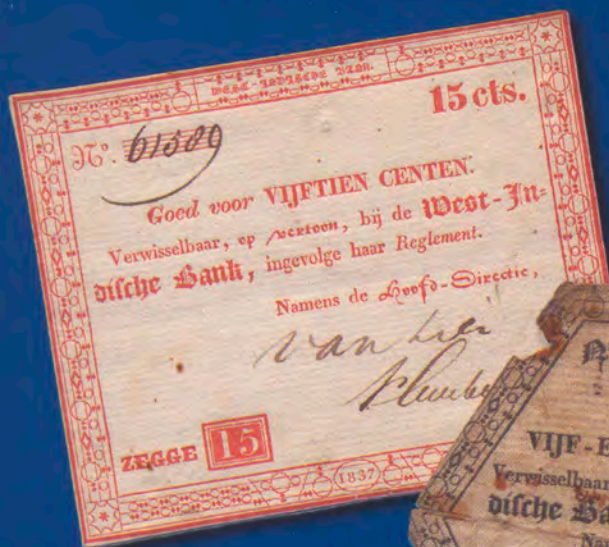 WEST-INDISCHE BANK.
15 cts.
No. 61589
Goed voor VIJFTIEN CENTEN.
Verwisselbaar, op vertoon, bij de West-In=
dische Bank, ingevolge haar Reglement.
Namens de Hoofd-Directie,
van
ZEGGE 15
1837
VIJF-
Verwisselbaar
dische Ba
Na